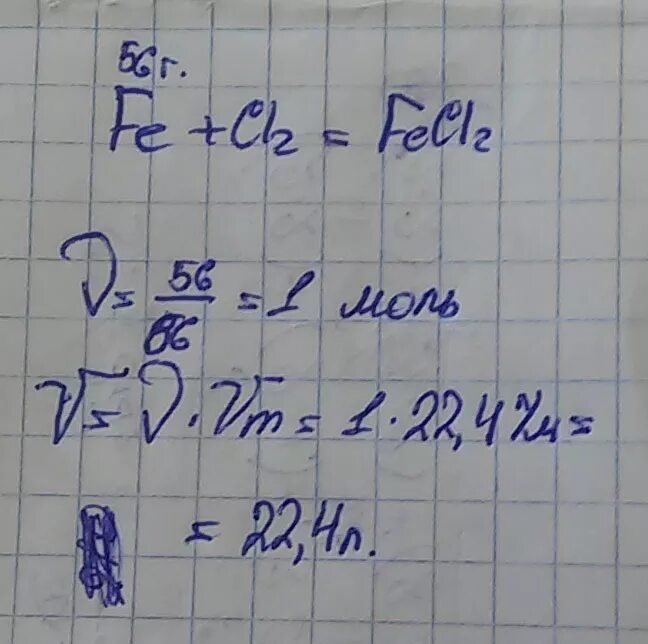 56 г.
Fe + Cl₂ = FeCl₂
ν = 56/56 = 1 моль
V = ν · Vm = 1 · 22,4 л/м =
= 22,4 л.